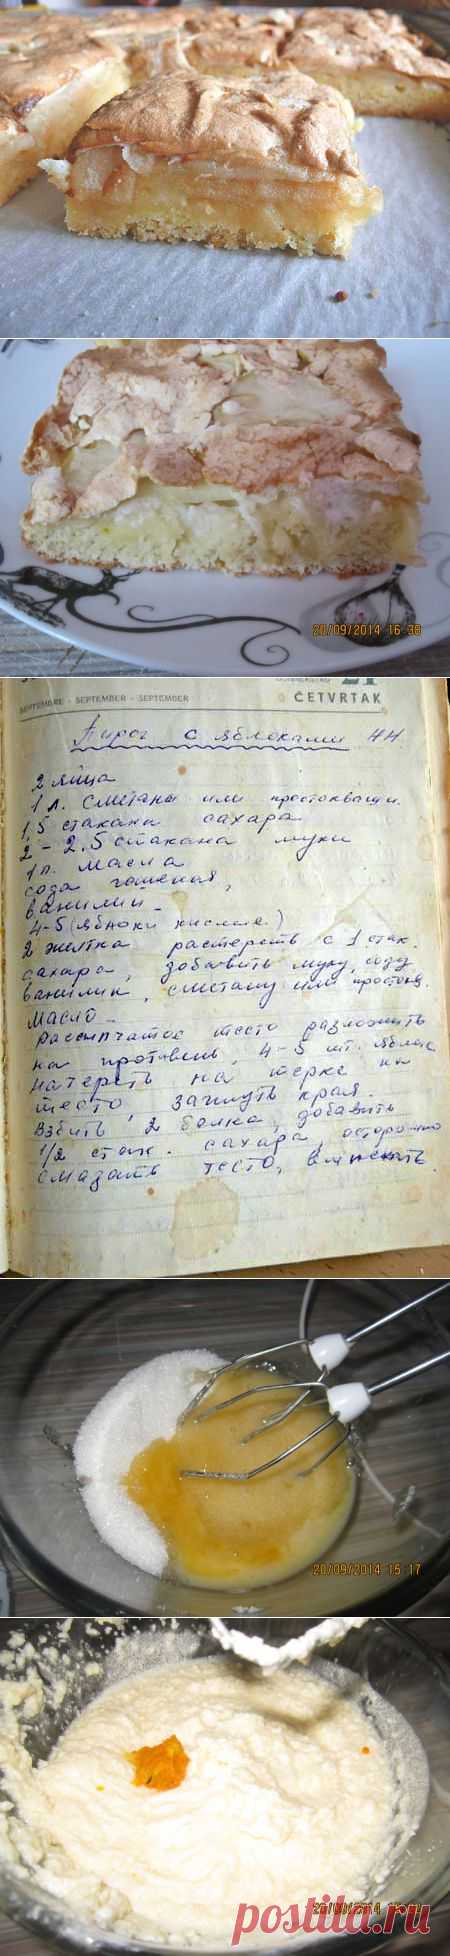 20/09/2014 16:38
SEPTEMBRE - SEPTEMBER - SEPTEMBER
21
ČETVRTAK
Пирог с яблоками НН.
2 яйца
1 л. сметаны или простокваши.
1,5 стакана сахара
2 - 2,5 стакана муки
1 п. масла
сода гашеная,
ванилин -
4-5 (яблоки кислые)
2 желтка растереть с 1 стак.
сахара, добавить муку, соду
ванилин, сметану или простокв.
масло -
Рассыпчатое тесто разложить
на противень, 4-5 шт. яблок
натереть на терке на
тесто, загнуть края.
Взбить 2 белка, добавить
1/2 стак. сахара, осторожно
смазать тесто, выпекать.
20/09/2014 15:17
20/09/2014
postila.ru